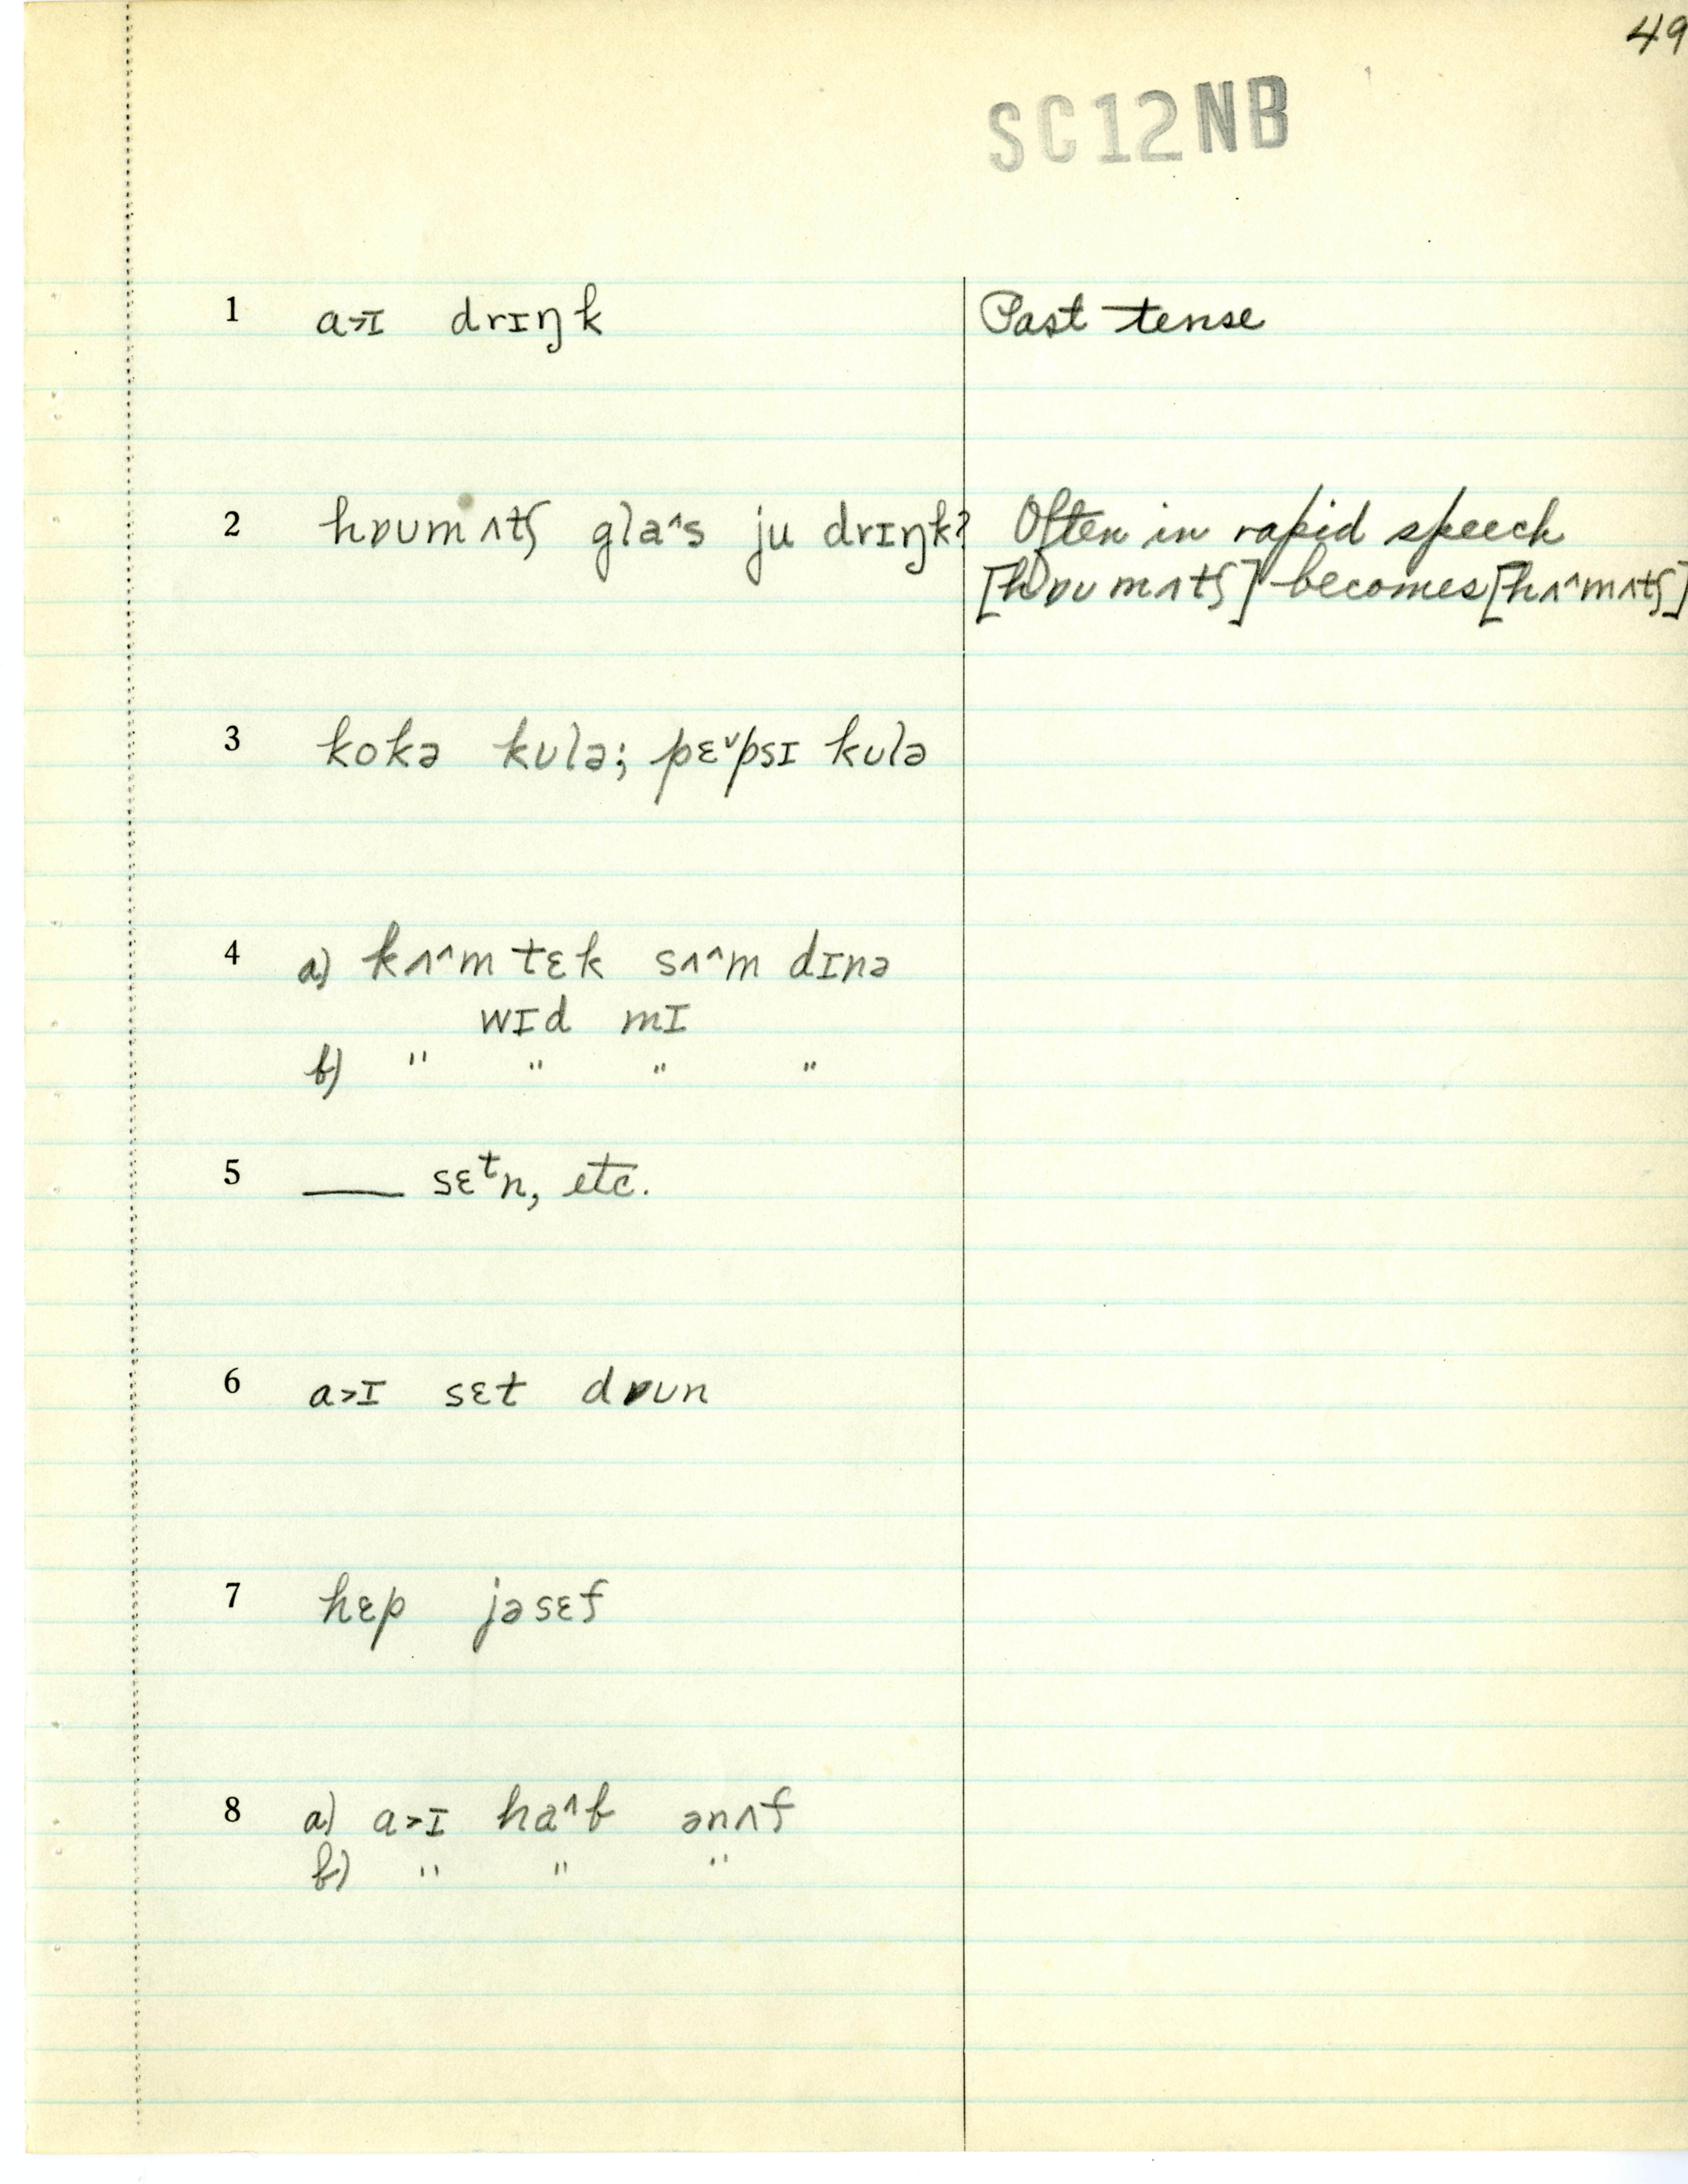 49
SC12NB
1 a>ɪ drɪŋk Past tense
2 hɒʊmʌtʃ gla^s ju drɪŋk? Often in rapid speech
[hɒʊmʌtʃ] becomes [hʌ^mʌtʃ]
3 kokə kʊlə; pɛˇpsɪ kʊlə
4 a) kʌ^m tɛk sʌ^m dɪnə
wɪd mɪ
b) " " " "
5 —— sɛᵗn, etc.
6 a>ɪ sɛt dɒʊn
7 hɛp jəsɛf
8 a) a>ɪ ha^b ənʌf
b) " " "